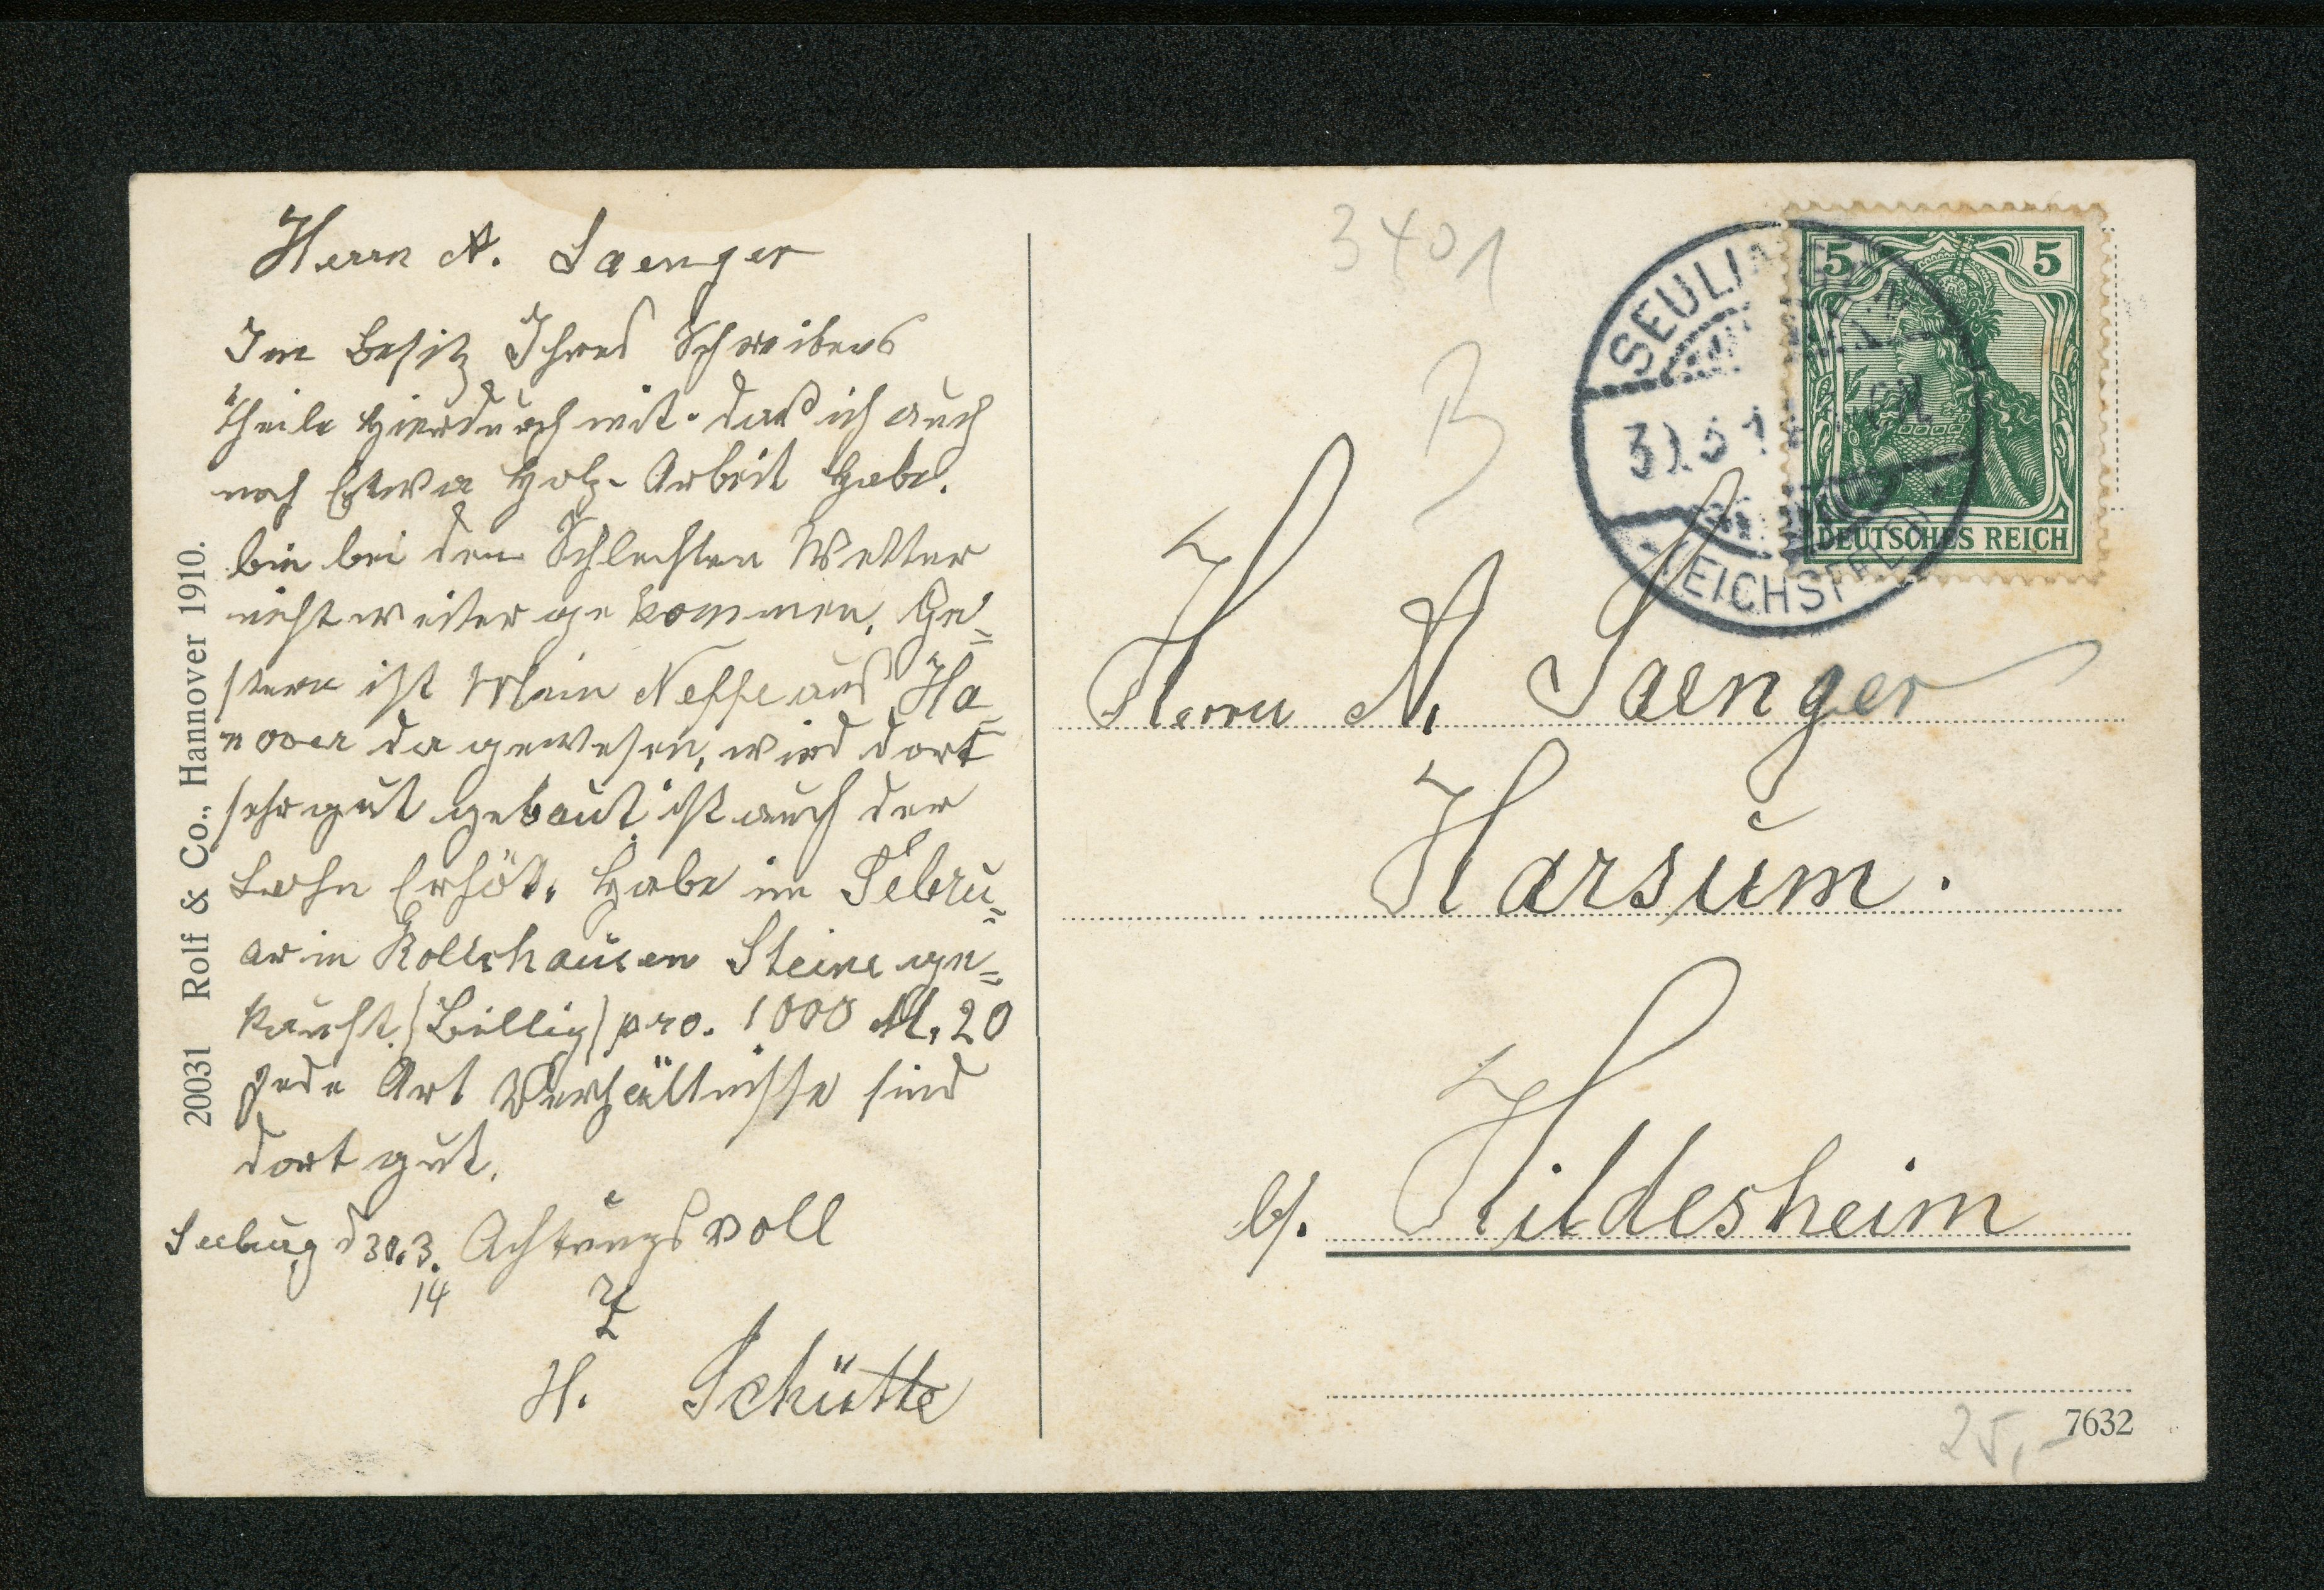 Herrn A. Saenger
Im Besitz Ihres Schreibens
Theile hierdurch mit. daß ich auch
noch Etwa Holz-Arbeit habe.
bin bei den Schlechten Wetter
nicht weiter gekommen. Ge=
stern ist Mein Neffe aus Ha=
nover da gewesen, wird dort
sehr gut gebaut ist auch der
Lohn Erhöt. Habe im Febru=
ar in Rollshausen Steine ge=
kauft. (Billig) pro. 1000 M. 20
Jede Art Verhältnisse sind
dort gut.
Seeburg d 30.3. Achtungsvoll
14
H. Schütte
20031 Rolf & Co., Hannover 1910.
3401
B
5 5
DEUTSCHES REICH
SEULINGEN
EICHSFELD
Herrn A. Saenger
Harsum.
b/. Hildesheim
25,-
7632